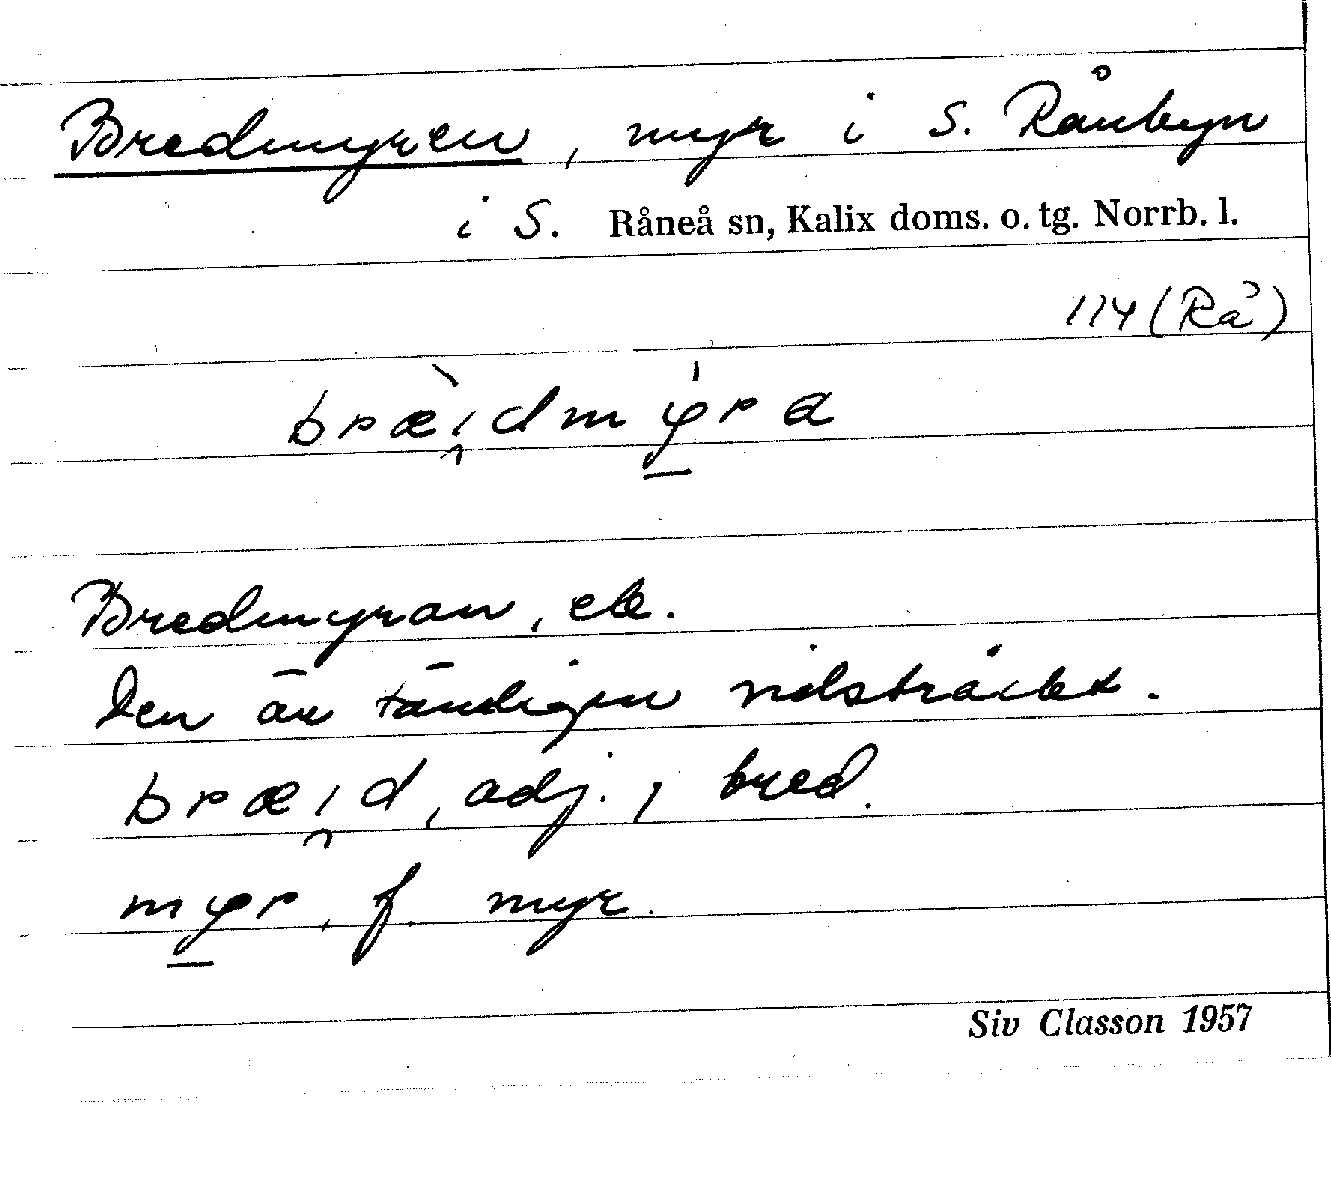 Bredmyren, myr i S. Rånbyn
i S. Råneå sn, Kalix doms. o. tg. Norrb. l.
114 (Rå)
bræ̀i̯dmý̱ra
Bredmyran, ek.
Den är tämligen vidsträckt.
bræi̯d, adj., bred.
my̱r, f. myr.
Siv Classon 1957